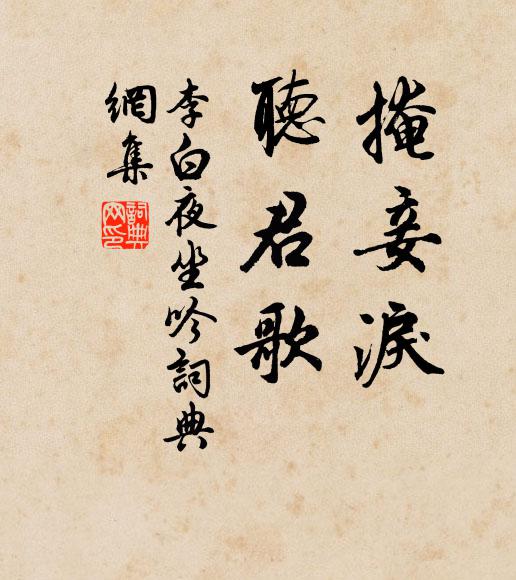 掩妾淚
聽君歌
李白夜坐吟詞典
網集
詞典
网印